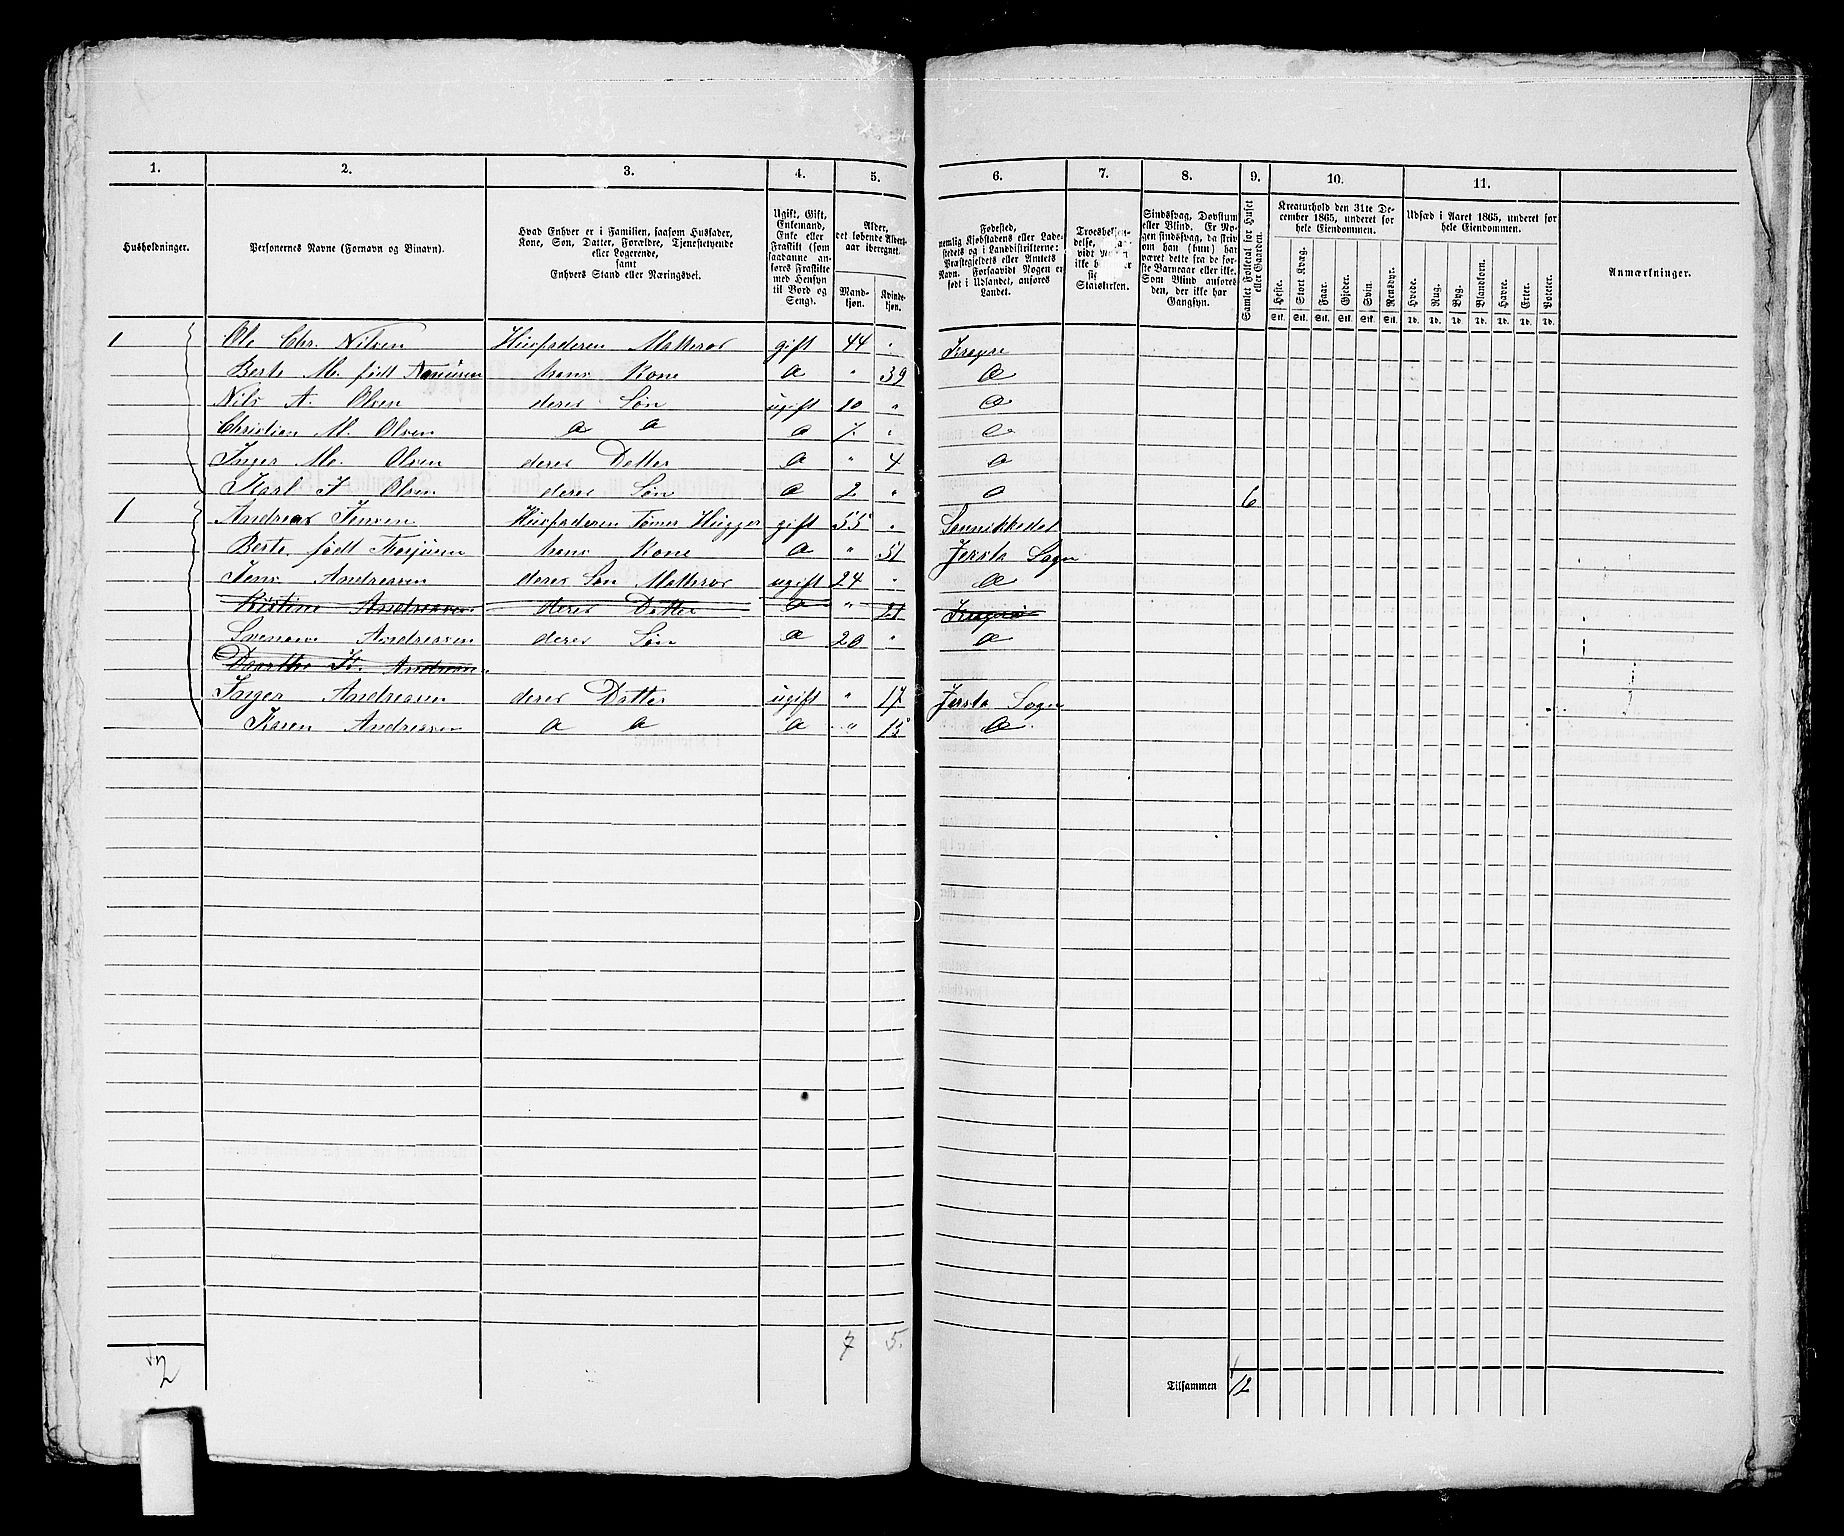 1. 2. 3. 4. 5. 6. 7. 8. 9. 10. 11.
Husholdninger.
Personernes Navne (Fornavn og Binavn).
Hvad Enhver er i Familien, saasom Husfader, Kone, Søn, Datter, Forældre, Tjenestetyende eller Logerende, samt Enhvers Stand eller Næringsvei.
Ugift, Gift, Enkemand, Enke eller Fraskilt (som saadanne anføres Fraskilte med Hensyn til Bord og Seng).
Alder, det løbende Alders-aar iberegnet.
Mandkjøn. Kvindekjøn.
Fødested, nemlig Kjøbstadens eller Ladestedets og i Landdistrikterne: Præstegjeldets eller Amtets Navn. Forsaavidt Nogen er født i Udlandet, anføres Landet.
Troesbekjendelse, forsaavidt Nogen ikke bekjender sig til Statskirken.
Sindssvag, Døvstum eller Blind. Er Nogen sindssvag, da skrives om han (hun) har været dette fra de første Barneaar eller ikke. Som Blind anføres den, der ikke har Gangsyn.
Samlet Folketal for Huset eller Gaarden.
Kreaturhold den 31te December 1865, underet for hele Eiendommen.
Heste. Stort Kvæg. Faar. Gjeder. Svin. Rensdyr.
Stk. Stk. Stk. Stk. Stk. Stk.
Udsæd i Aaret 1865, underet for hele Eiendommen.
Hvede. Rug. Byg. Blandkorn. Havre. Erter. Poteter.
Td. Td. Td. Td. Td. Td. Td.
Anmærkninger.
1 Ole Chr. Nilsen Huusfaderen Matteros gift 44 " Kragøe
Berte M. født hans Kone a " 39 a
Nils A. Olsen deres Søn ugift 10 " a
Christian M. Olsen a a a 7. " a
Inger M. Olsen deres Datter a " 4 a
Karl J Olsen deres Søn a 2 " a 6
1 Andreas Jensen Huusfaderen Tømer Hugger gift 55 " Sannikkedal
Berte født hans Kone a " 51 Jersta Sogn
Jens Andreasen deres Søn Matteros ugift 24 " a
Kistine Andreasen deres Datter a " 21 Kragøe
Andreasen deres Søn a 20 " a
Andreasen
Inger Andreasen deres Datter ugift " 17 Jersta Sogn
Karen Andreasen a a a " 15 a
2 7 5.
Tilsammen 12